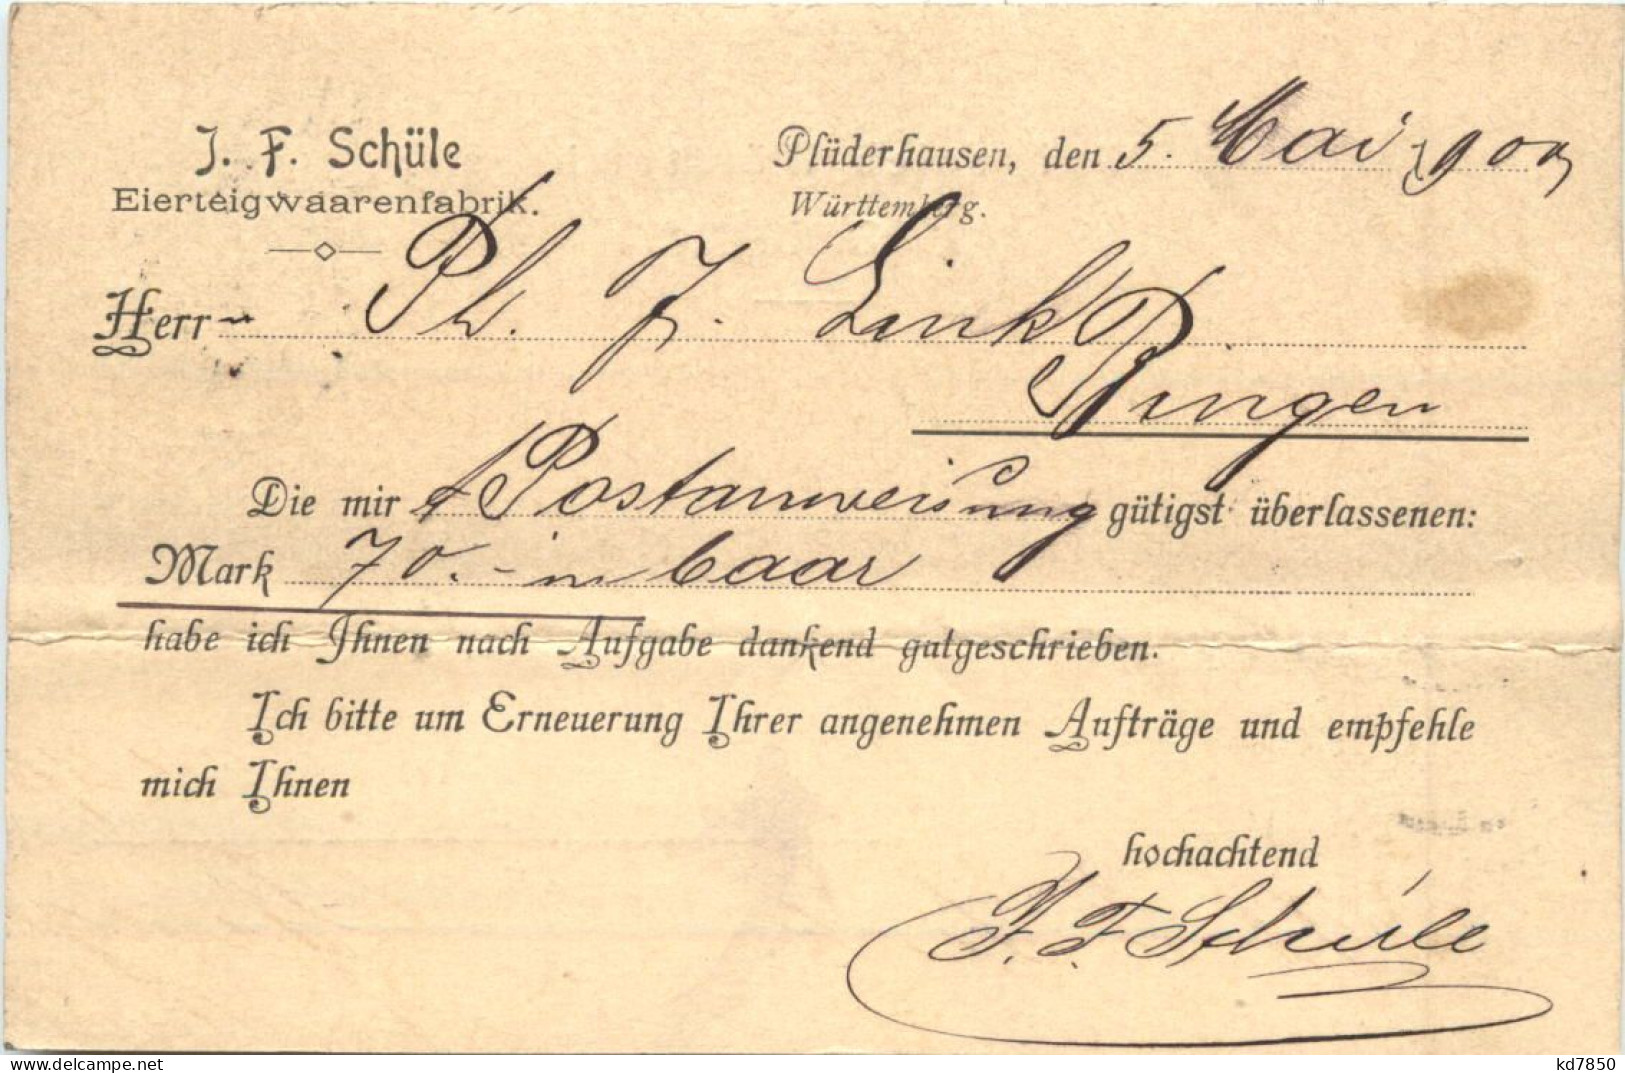 J. F. Schüle
Eierteigwaarenfabrik.
Plüderhausen, den 5. Mai 1900
Württemberg.
Herrn Ph. J. Link
Bingen
Die mir p Postanweisung gütigst überlassenen:
Mark 70.- in baar
habe ich Ihnen nach Aufgabe dankend gutgeschrieben.
Ich bitte um Erneuerung Ihrer angenehmen Aufträge und empfehle
mich Ihnen
hochachtend
J. F. Schüle
delcampe.net
kd7850